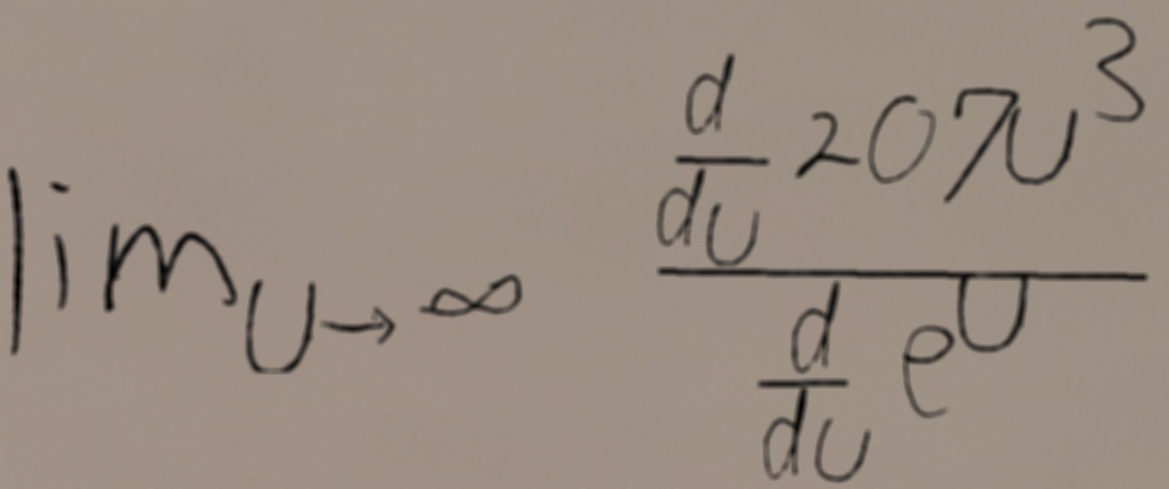 \lim_{u \to \infty} \frac{\frac{d}{du} 207u^3}{\frac{d}{du} e^u}